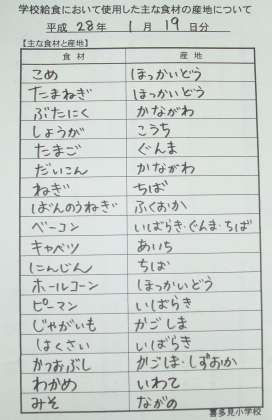 学校給食において使用した主な食材の産地について
平成 28年 1月 19日分
【主な食材と産地】
食材 産地
こめ ほっかいどう
たまねぎ ほっかいどう
ぶたにく かながわ
しょうが こうち
たまご ぐんま
だいこん かながわ
ねぎ ちば
ばんのうねぎ ふくおか
ベーコン いばらき・ぐんま・ちば
キャベツ あいち
にんじん ちば
ホールコーン ほっかいどう
ピーマン いばらき
じゃがいも かごしま
はくさい いばらき
かつおぶし かごしま・しずおか
わかめ いわて
みそ ながの
喜多見小学校